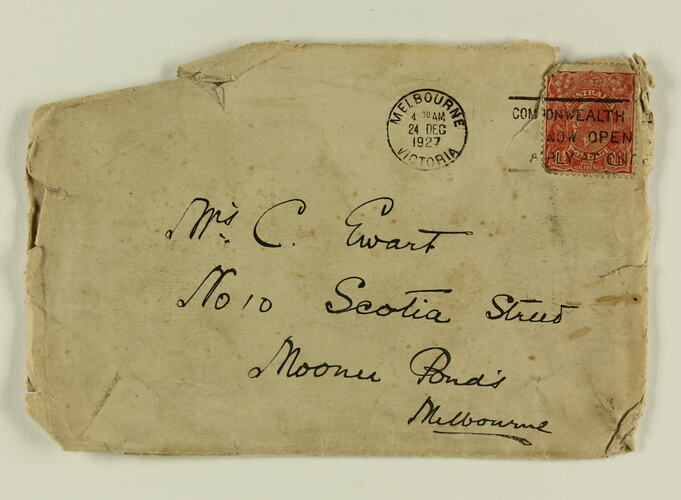 MELBOURNE
4 30 AM
24 DEC
1927
VICTORIA
COMMONWEALTH
NOW OPEN
APPLY AT ONCE
Mrs. C. Ewart
No 10 Scotia Street
Moonee Ponds
Melbourne